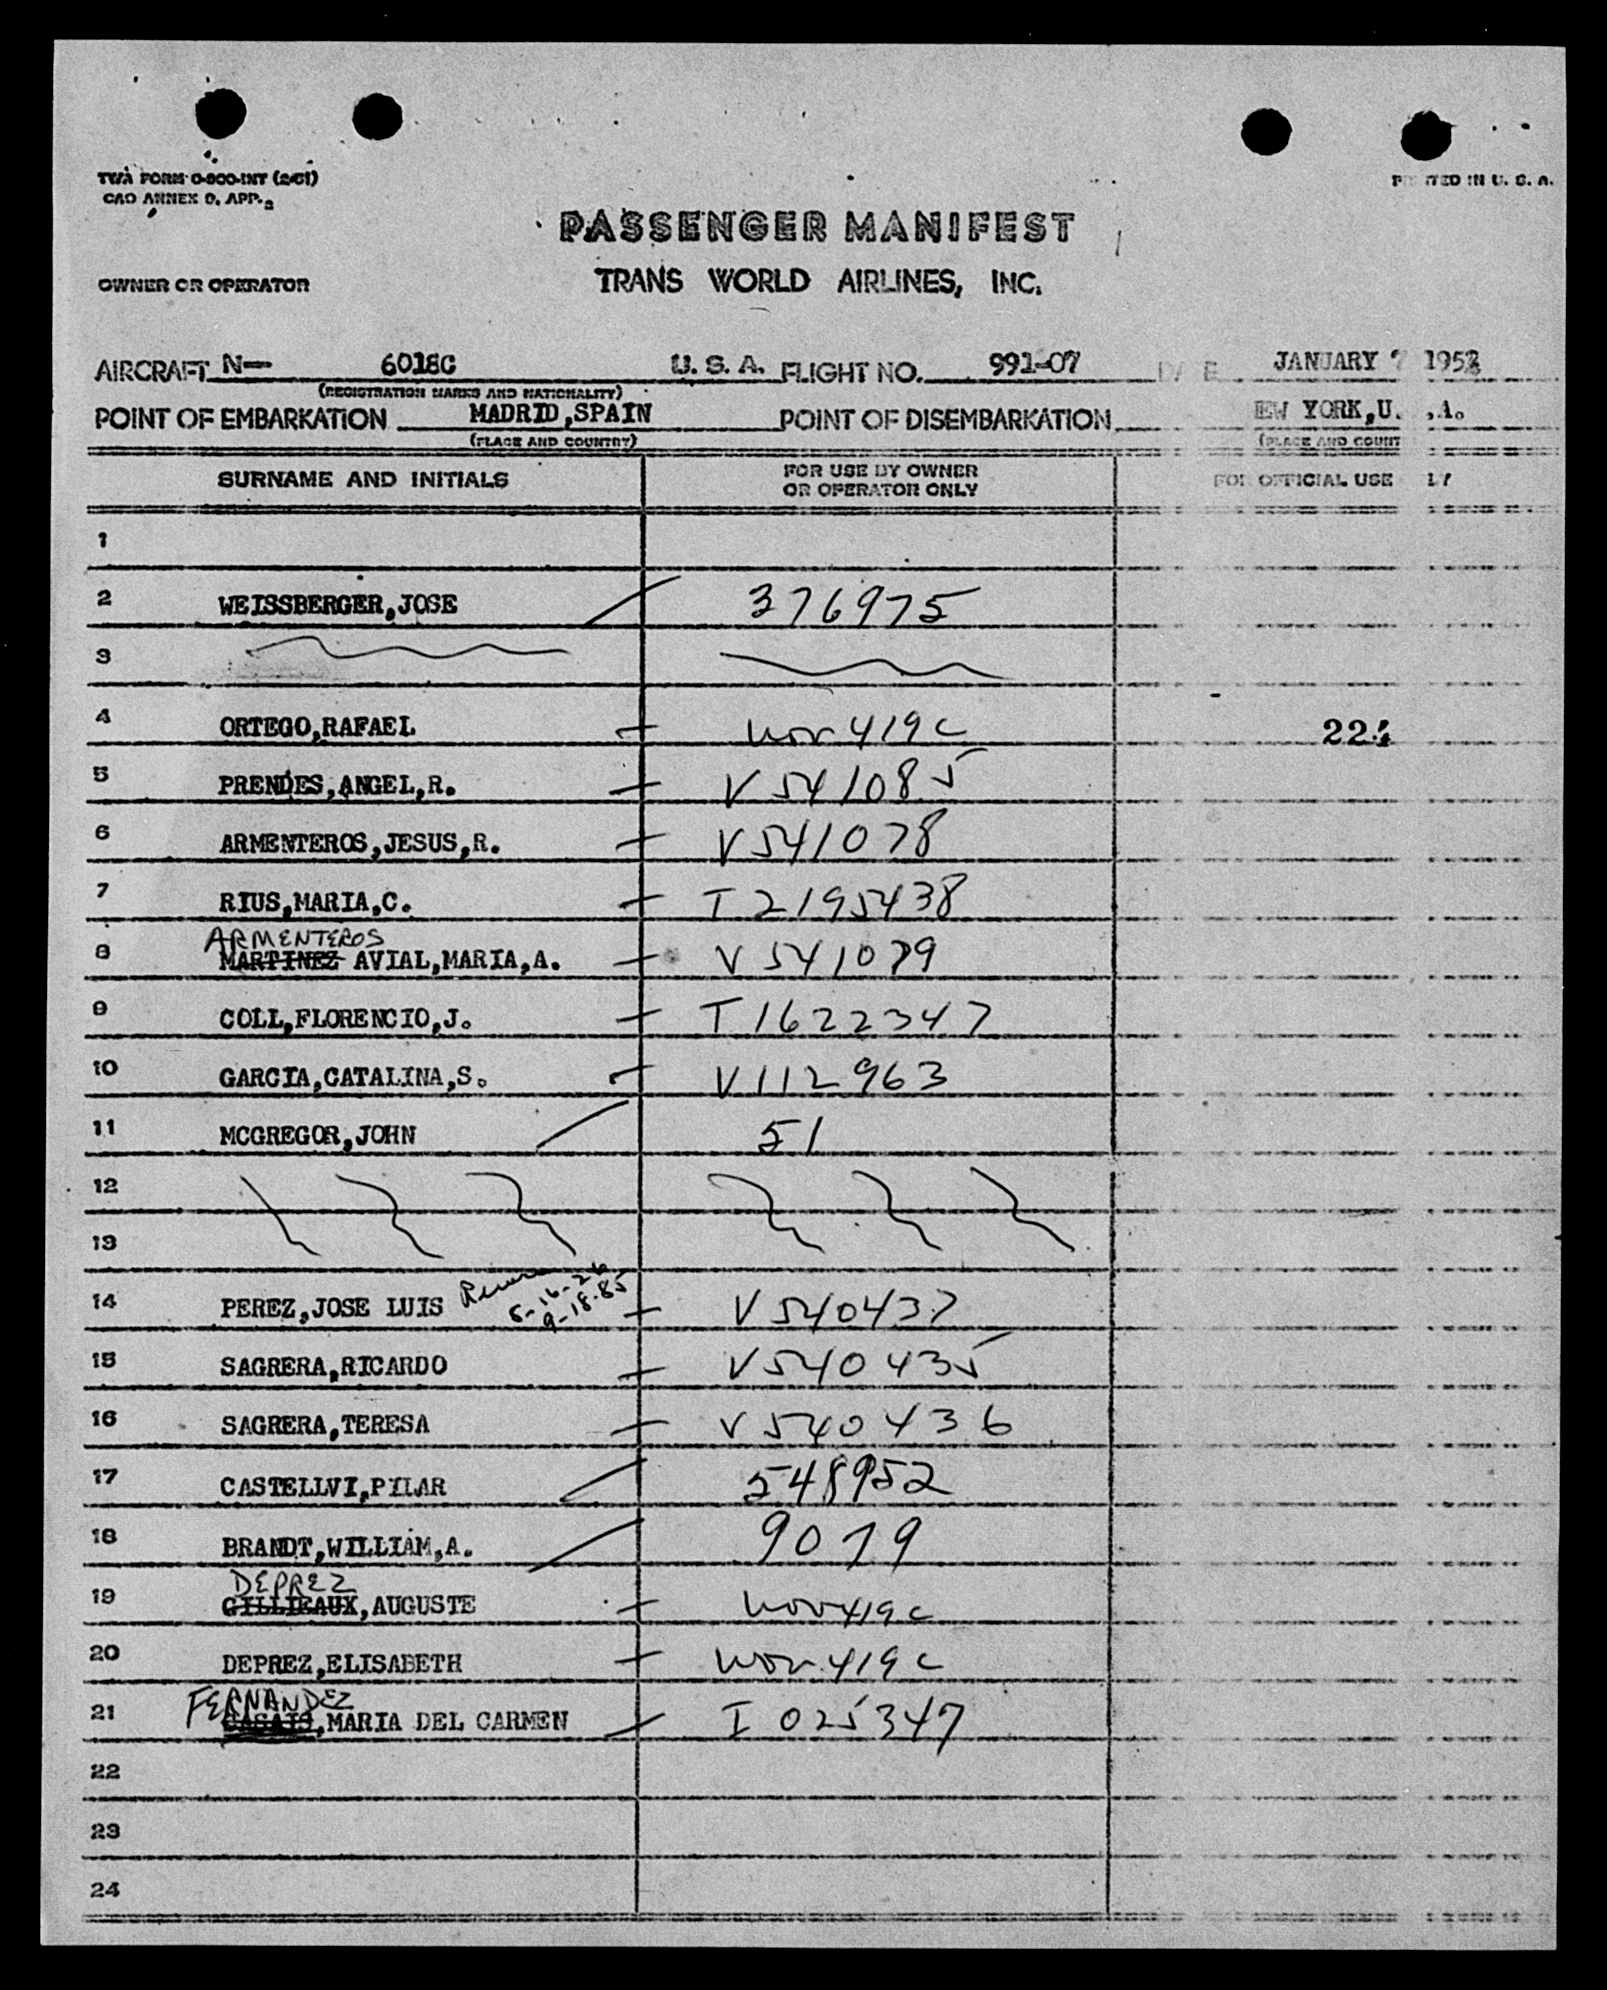 TWA FORM O-800-INT (2-51)
CAO ANNEX 9, APP. 2
PRINTED IN U. S. A.
PASSENGER MANIFEST
OWNER OR OPERATOR
TRANS WORLD AIRLINES, INC.
AIRCRAFT N- 6018C U.S.A. FLIGHT NO. 991-07 DATE JANUARY 7 1952
(REGISTRATION MARKS AND NATIONALITY)
POINT OF EMBARKATION MADRID,SPAIN POINT OF DISEMBARKATION EW YORK,U. .A.
(PLACE AND COUNTRY) (PLACE AND COUNT
SURNAME AND INITIALS FOR USE BY OWNER OR OPERATOR ONLY FOR OFFICIAL USE
1
2 WEISSBERGER,JOSE 376975
3
4 ORTEGO,RAFAEL 419c 224
5 PRENDES,ANGEL,R. V541085
6 ARMENTEROS,JESUS,R. V541078
7 RIUS,MARIA,C. T2195438
ARMENTEROS
8 MARTINEZ AVIAL,MARIA,A. V541079
9 COLL,FLORENCIO,J. T1622347
10 GARCIA,CATALINA,S. V112963
11 MCGREGOR,JOHN 51
12
13
14 PEREZ,JOSE LUIS 9-18-85 V540437
15 SAGRERA,RICARDO V540435
16 SAGRERA,TERESA V540436
17 CASTELLVI,PILAR 548952
18 BRANDT,WILLIAM,A. 9079
DEPREZ
19 GILLIEAUX,AUGUSTE 419c
20 DEPREZ,ELISABETH 419c
FERNANDEZ
21 CASAIS,MARIA DEL CARMEN I 025347
22
23
24